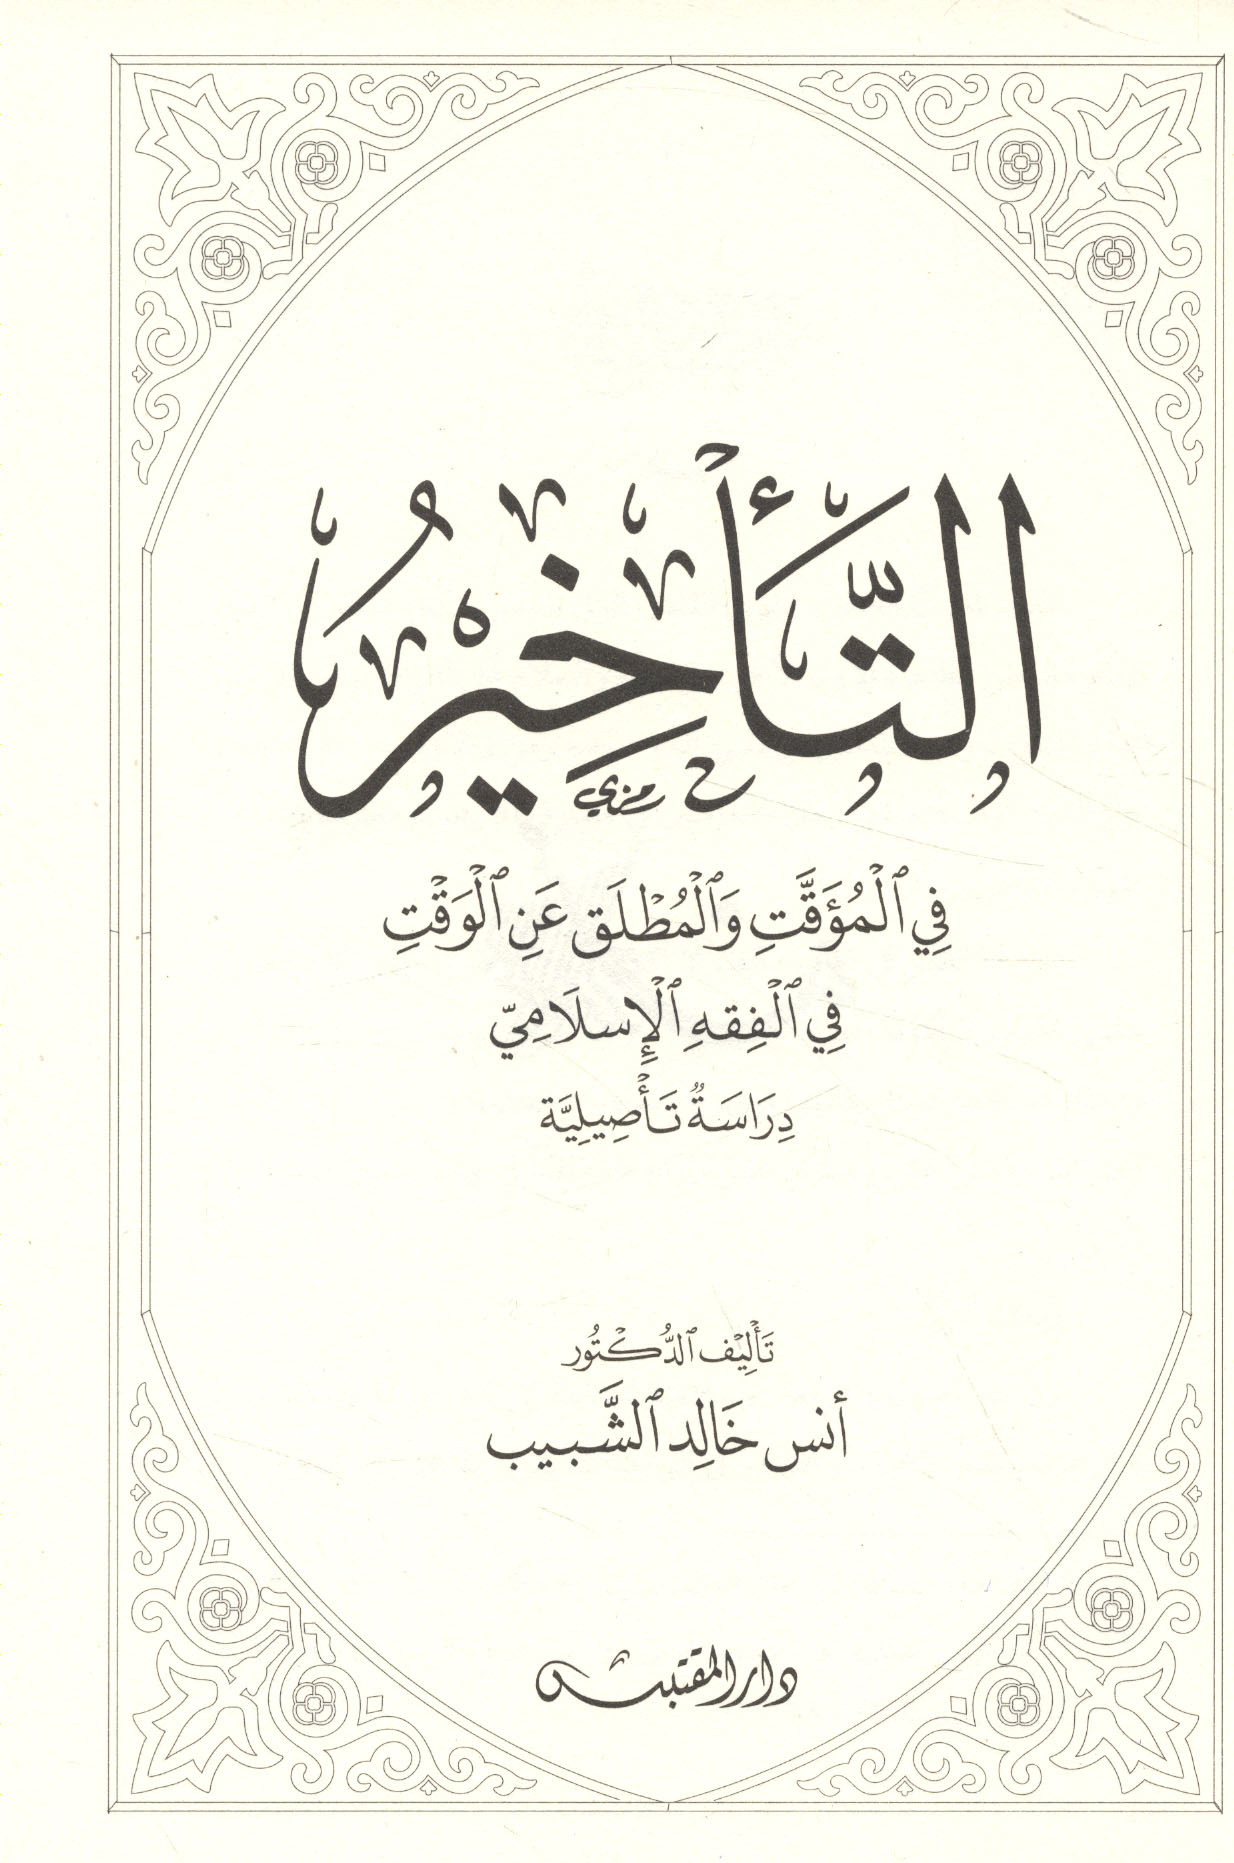 التَّأْخِيْرُ
رمزي
فِي ٱلْمُؤَقَّتِ وَٱلْمُطْلَقِ عَنِ ٱلْوَقْتِ
فِي ٱلْفِقْهِ ٱلْإِسلَامِيّ
دِرَاسَةٌ تَأْصِيلِيَّة
تَأْلِيْف ٱلدُّكْتُور
أنس خَالِد ٱلشَّبيب
دار المقتبس